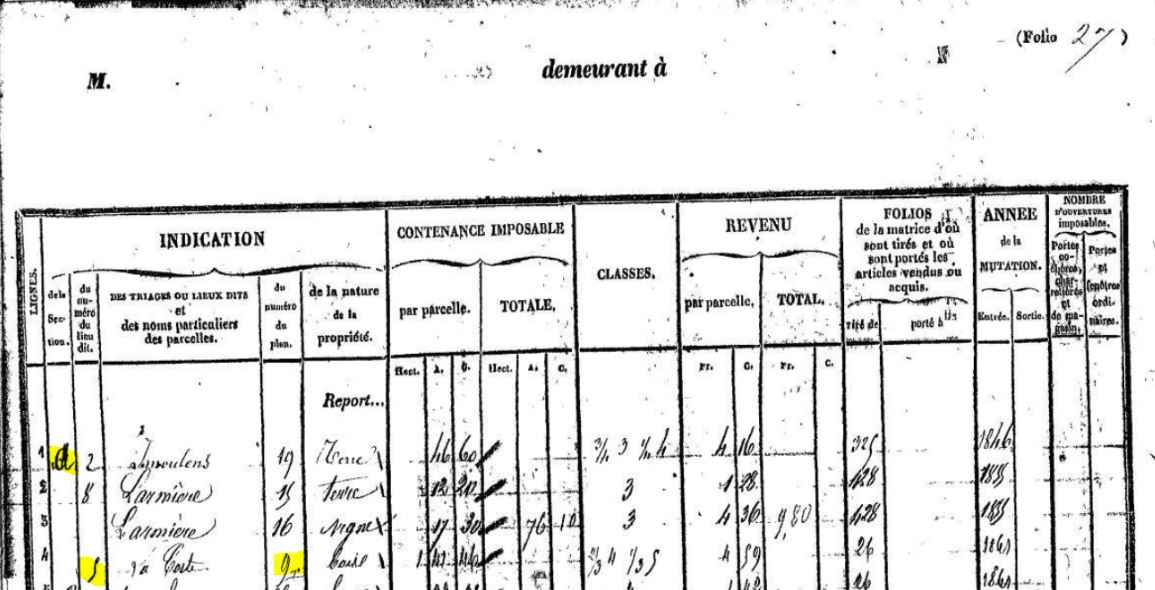 (Folio 27)
M. demeurant à
LIGNES.
INDICATION
de la Section.
du numéro du lieu dit.
DES TRIAGES OU LIEUX DITS
et
des noms particuliers
des parcelles.
du numéro du plan.
de la nature de la propriété.
CONTENANCE IMPOSABLE
par parcelle.
TOTALE.
Hect. A. C. Hect. A. C.
CLASSES.
REVENU
par parcelle.
TOTAL.
Fr. C. Fr. C.
FOLIOS
de la matrice d'où
sont tirés et où
sont portés les
articles vendus ou
acquis.
tiré de
porté à
ANNEE
de la
MUTATION.
Entrée. Sortie.
NOMBRE
D'OUVERTURES
imposables.
Portes cochères, charretières et de magasin.
Portes et fenêtres ordinaires.
Report...
1 2 19 46 60 4 16 325 1846
2 8 Larmière 15 terre 12 20 3 1 28 428
3 Larmière 16 17 30 76 10 3 4 36 9 80 428
4 5 La Coste 4 59 26
26